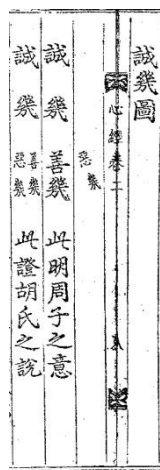 誠幾圖
心經卷二
惡幾
誠幾 善幾 此明周子之意
誠幾 善幾 惡幾 此證胡氏之說